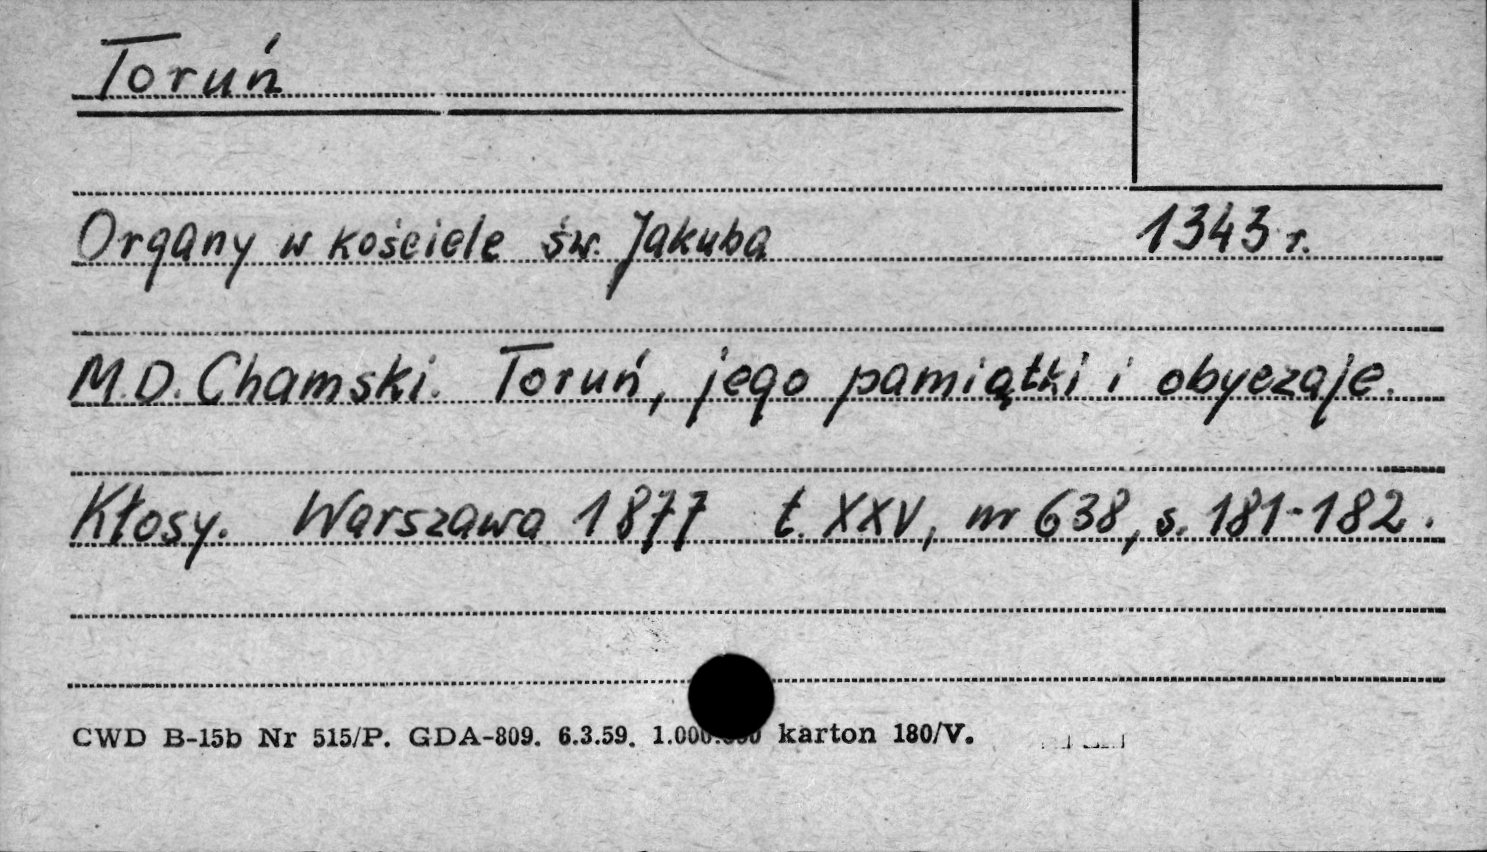 Toruń
Organy w kościele św. Jakuba 1343 r.
M.D. Chamski. Toruń, jego pamiątki i obyczaje.
Kłosy. Warszawa 1877 t. XXV, nr 638, s. 181-182.
CWD B-15b Nr 515/P. GDA-809. 6.3.59. karton 180/V.